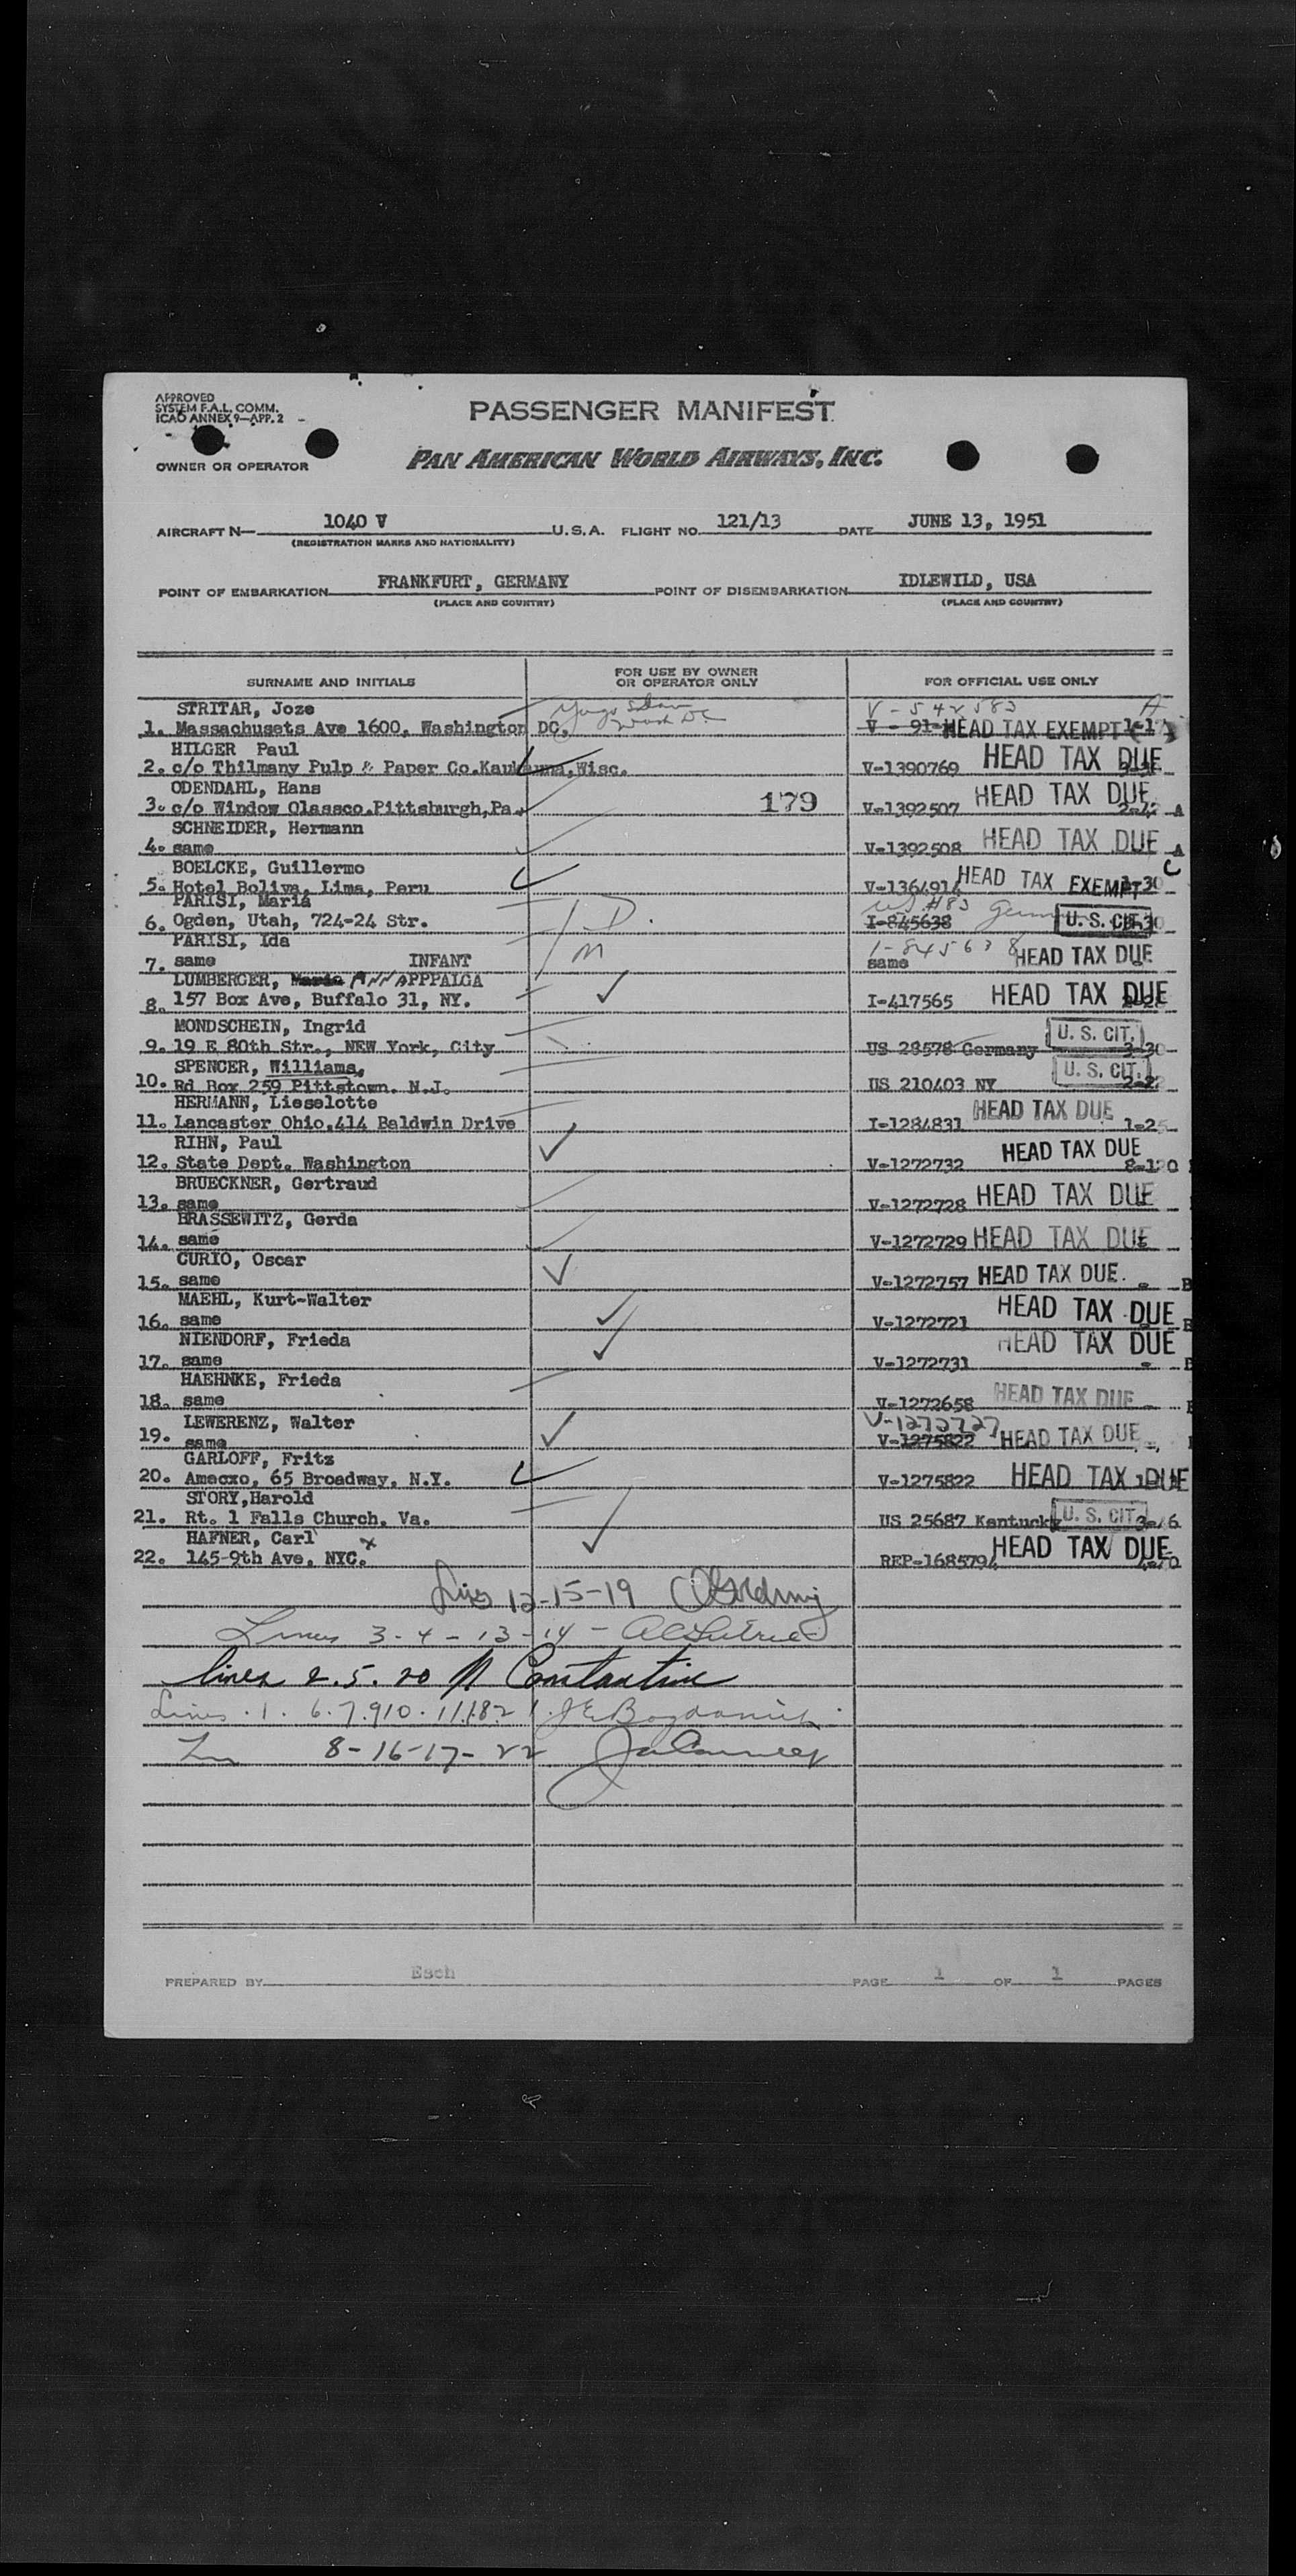 APPROVED
SYSTEM F.A.L. COMM.
ICAO ANNEX 9—APP. 2
PASSENGER MANIFEST
OWNER OR OPERATOR
PAN AMERICAN WORLD AIRWAYS, INC.
AIRCRAFT N— 1040 V U.S.A. FLIGHT NO. 121/13 DATE JUNE 13, 1951
(REGISTRATION MARKS AND NATIONALITY)
POINT OF EMBARKATION FRANKFURT, GERMANY POINT OF DISEMBARKATION IDLEWILD, USA
(PLACE AND COUNTRY) (PLACE AND COUNTRY)
SURNAME AND INITIALS FOR USE BY OWNER OR OPERATOR ONLY FOR OFFICIAL USE ONLY
STRITAR, Joze V-542583 A
1. Massachusets Ave 1600, Washington DC. Wash DC V - 91- HEAD TAX EXEMPT
HILGER Paul
2. c/o Thilmany Pulp & Paper Co.Kaukauna,Wisc. V-1390769 HEAD TAX DUE
ODENDAHL, Hans
3. c/o Window Glassco.Pittsburgh,Pa. 179 V-1392507 HEAD TAX DUE 2-42 A
SCHNEIDER, Hermann
4. same V-1392508 HEAD TAX DUE A
BOELCKE, Guillermo C
5. Hotel Boliva, Lima, Peru V-1364914 HEAD TAX EXEMPT 30
PARISI, Maria
6. Ogden, Utah, 724-24 Str. D. I-845638 U.S. CIT. 30
PARISI, Ida
7. same INFANT M 1-845638 same HEAD TAX DUE
LUMBERGER, Maria ANNAPPPALGA
8. 157 Box Ave, Buffalo 31, NY. I-417565 HEAD TAX DUE
MONDSCHEIN, Ingrid
9. 19 E 80th Str., NEW York, City US 28578 Germany U. S. CIT. 3-30
SPENCER, Williams,
10. Rd Box 259 Pittstown. N.J. US 210403 NY U. S. CIT.
HERMANN, Lieselotte
11. Lancaster Ohio,414 Baldwin Drive I-1284831 HEAD TAX DUE 1-25
RIHN, Paul
12. State Dept. Washington V-1272732 HEAD TAX DUE
BRUECKNER, Gertraud
13. same V-1272728 HEAD TAX DUE
BRASSEWITZ, Gerda
14. same V-1272729 HEAD TAX DUE
CURIO, Oscar
15. same V-1272757 HEAD TAX DUE. B
MAEHL, Kurt-Walter
16. same V-1272721 HEAD TAX DUE B
NIENDORF, Frieda
17. same V-1272731 HEAD TAX DUE
HAEHNKE, Frieda
18. same V-1272658 HEAD TAX DUE
LEWERENZ, Walter V-1272727
19. same V-1275822 HEAD TAX DUE
GARLOFF, Fritz
20. Amecxo, 65 Broadway, N.Y. V-1275822 HEAD TAX DUE
STORY,Harold
21. Rt. 1 Falls Church, Va. US 25687 Kentucky U. S. CIT.
HAFNER, Carl
22. 145-9th Ave, NYC. x REP-1685794 HEAD TAX DUE
12-15-19
Lines 3-4-13-14-
lines 2.5.20 Constantine
Lines. 1. 6.7.910.11.18.21.
8-16-17-22
PREPARED BY Esch PAGE 1 OF 1 PAGES